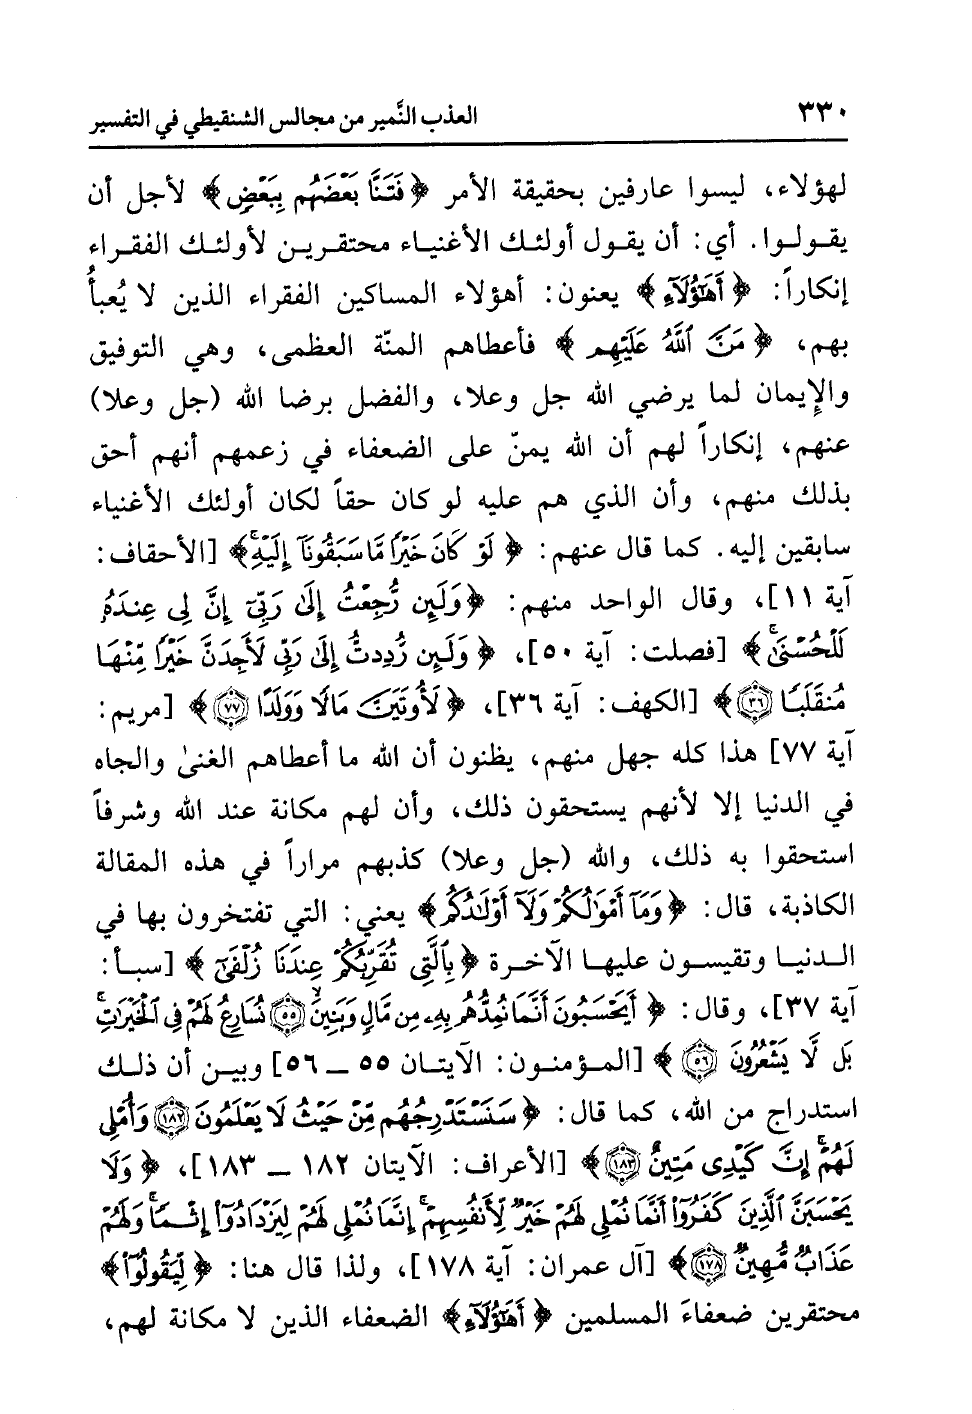 ٣٣٠ العذب النَّمير من مجالس الشنقيطي في التفسير
لهؤلاء، ليسوا عارفين بحقيقة الأمر ﴿فَتَنَّا بَعْضَهُم بِبَعْضٍ﴾ لأجل أن
يقولوا. أي: أن يقول أولئك الأغنياء محتقرين لأولئك الفقراء
إنكاراً: ﴿أَهَٰٓؤُلَآءِ﴾ يعنون: أهؤلاء المساكين الفقراء الذين لا يُعبأُ
بهم، ﴿مَنَّ ٱللَّهُ عَلَيْهِم﴾ فأعطاهم المنّة العظمى، وهي التوفيق
والإيمان لما يرضي الله جل وعلا، والفضل برضا الله (جل وعلا)
عنهم، إنكاراً لهم أن الله يمنّ على الضعفاء في زعمهم أنهم أحق
بذلك منهم، وأن الذي هم عليه لو كان حقاً لكان أولئك الأغنياء
سابقين إليه. كما قال عنهم: ﴿لَوْ كَانَ خَيْرًا مَّا سَبَقُونَآ إِلَيْهِۚ﴾ [الأحقاف:
آية ١١]، وقال الواحد منهم: ﴿وَلَئِن رُّجِعْتُ إِلَىٰ رَبِّىٓ إِنَّ لِى عِندَهُۥ
لَلْحُسْنَىٰۚ﴾ [فصلت: آية ٥٠]، ﴿وَلَئِن رُّدِدتُّ إِلَىٰ رَبِّى لَأَجِدَنَّ خَيْرًا مِّنْهَا
مُنقَلَبًا ٣٦﴾ [الكهف: آية ٣٦]، ﴿لَأُوتَيَنَّ مَالًا وَوَلَدًا ٧٧﴾ [مريم:
آية ٧٧] هذا كله جهل منهم، يظنون أن الله ما أعطاهم الغنىٰ والجاه
في الدنيا إلا لأنهم يستحقون ذلك، وأن لهم مكانة عند الله وشرفاً
استحقوا به ذلك، والله (جل وعلا) كذبهم مراراً في هذه المقالة
الكاذبة، قال: ﴿وَمَآ أَمْوَٰلُكُمْ وَلَآ أَوْلَٰدُكُم﴾ يعني: التي تفتخرون بها في
الدنيا وتقيسون عليها الآخرة ﴿بِٱلَّتِى تُقَرِّبُكُمْ عِندَنَا زُلْفَىٰٓ﴾ [سبأ:
آية ٣٧]، وقال: ﴿أَيَحْسَبُونَ أَنَّمَا نُمِدُّهُم بِهِۦ مِن مَّالٍ وَبَنِينَۙ ٥٥ نُسَارِعُ لَهُمْ فِى ٱلْخَيْرَٰتِۚ
بَل لَّا يَشْعُرُونَ ٥٦﴾ [المؤمنون: الآيتان ٥٥ ــ ٥٦] وبين أن ذلك
استدراج من الله، كما قال: ﴿سَنَسْتَدْرِجُهُم مِّنْ حَيْثُ لَا يَعْلَمُونَ ١٨٢ وَأُمْلِى
لَهُمْۚ إِنَّ كَيْدِى مَتِينٌ ١٨٣﴾ [الأعراف: الآيتان ١٨٢ ــ ١٨٣]، ﴿وَلَا
يَحْسَبَنَّ ٱلَّذِينَ كَفَرُوٓا۟ أَنَّمَا نُمْلِى لَهُمْ خَيْرٌ لِّأَنفُسِهِمْۚ إِنَّمَا نُمْلِى لَهُمْ لِيَزْدَادُوٓا۟ إِثْمًاۚ وَلَهُمْ
عَذَابٌ مُّهِينٌ ١٧٨﴾ [آل عمران: آية ١٧٨]، ولذا قال هنا: ﴿لِّيَقُولُوٓا۟﴾
محتقرين ضعفاءَ المسلمين ﴿أَهَٰٓؤُلَآءِ﴾ الضعفاء الذين لا مكانة لهم،